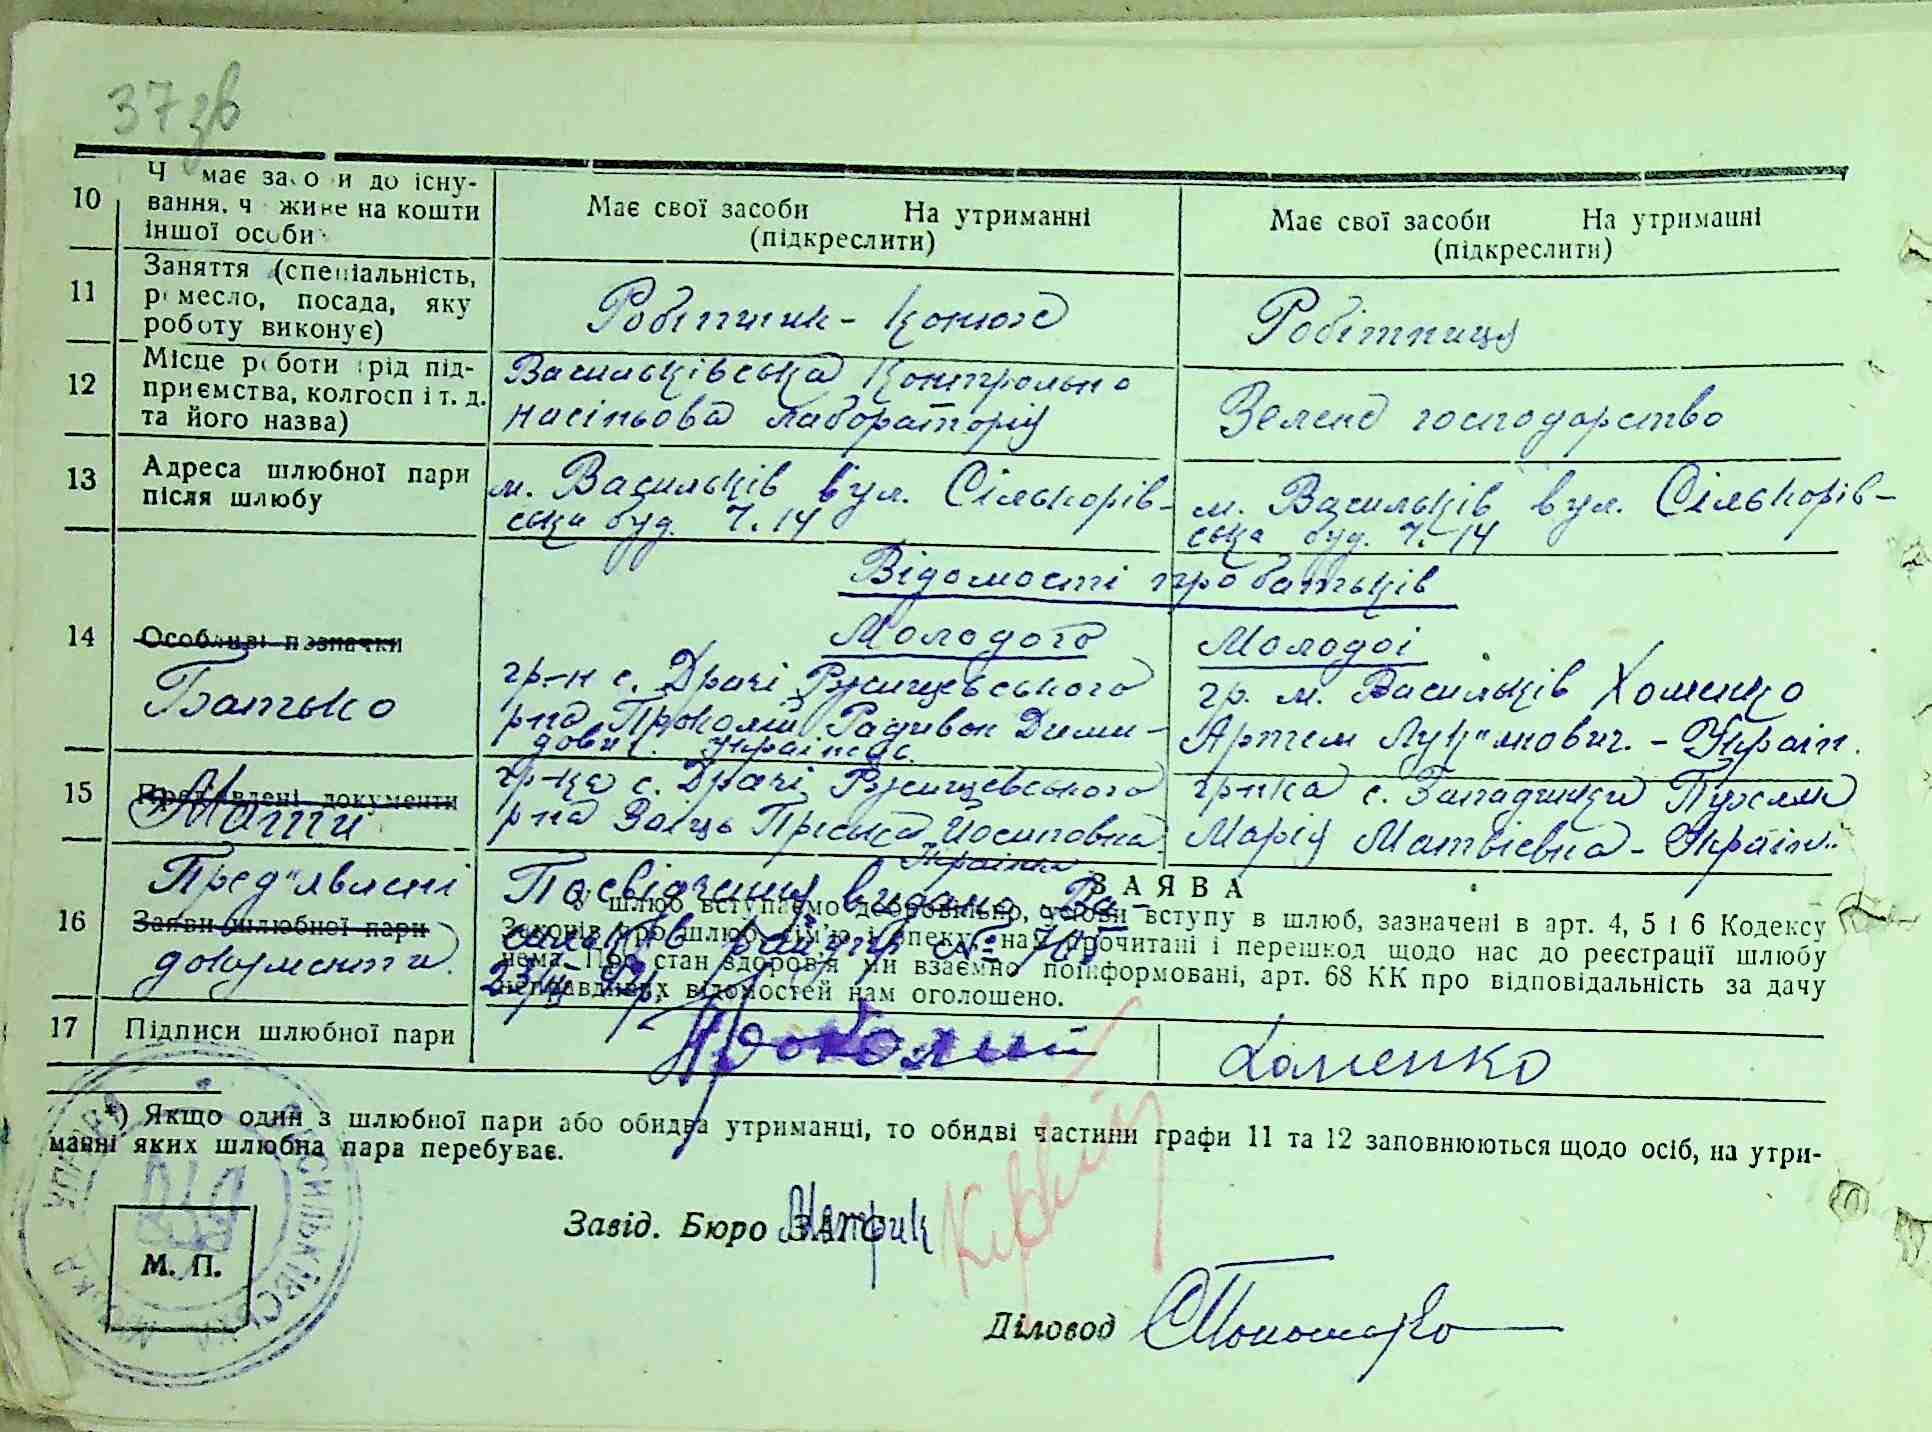 37 зв
10
Чи має засоби до існування, чи живе на кошти іншої особи
Має свої засоби На утриманні
(підкреслити)
Має свої засоби На утриманні
(підкреслити)
11
Заняття (спеціальність,
ремесло, посада, яку
роботу виконує)
Робітник - Конюх
Робітниця
12
Місце роботи (рід під-
приємства, колгосп і т. д.
та його назва)
Васильківська Контрольно
насіньова лабораторія
Зелене господарство
13
Адреса шлюбної пари
після шлюбу
м. Васильків вул. Сількорів-
ська буд. ч. 14
м. Васильків вул. Сількорів-
ська буд. ч. 14
Відомості про батьків
14
Особливі позначки
Батько
Молодого
гр-н с. Драчі Ржищевського
р-на Проколій Радивон Дими-
дович. Українец.
Молодої
гр. м. Васильків Хоменко
Артем Лук"янович. - Україн.
15
Пред'явлені документи
Мати
гр-ка с. Драчі Ржищевського
р-на Заєць Пріська Йосиповна
Українка
гр-нка с. Западинки
Марія Матвієвна - Україн.
16
Пред"явлені
Заяви шлюбної пари
документи.
Посвідчення видано Ва-
ЗАЯВА
У шлюб вступаємо добровільно, умови вступу в шлюб, зазначені в арт. 4, 5 і 6 Кодексу
Законів про шлюб, сім'ю і опеку, нам прочитані і перешкод щодо нас до реєстрації шлюбу
нема. Про стан здоров'я ми взаємно поінформовані, арт. 68 КК про відповідальність за дачу
неправдивих відомостей нам оголошено.
17
Підписи шлюбної пари
Проколий
Хоменко
*) Якщо один з шлюбної пари або обидва утриманці, то обидві частини графи 11 та 12 заповнюються щодо осіб, на утри-
манні яких шлюбна пара перебуває.
Завід. Бюро ЗАГС
Метрик
М. П.
ВАСИЛЬКІВСЬКА МІСЬКА УПРАВА
Діловод